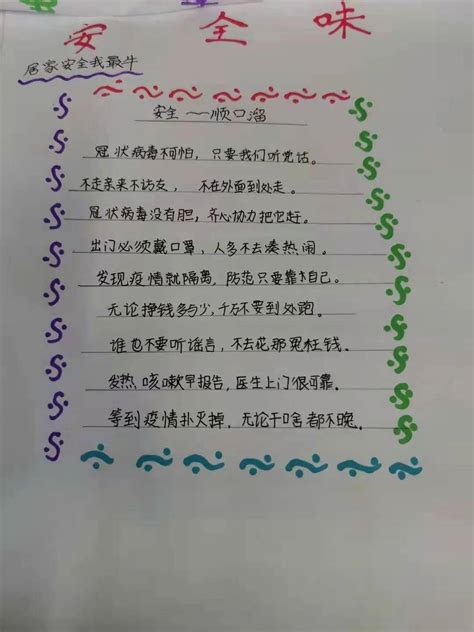 安全味
居家安全我最牛
安全──顺口溜
冠状病毒不可怕，只要我们听党话。
不走亲来不访友，不在外面到处走。
冠状病毒没有胆，齐心协力把它赶。
出门必须戴口罩，人多不去凑热闹。
发现疫情就隔离，防范只要靠自己。
无论挣钱多与少，千万不要到处跑。
谁也不要听谣言，不去花那冤枉钱。
发热咳嗽早报告，医生上门很可靠。
等到疫情扑灭掉，无论干啥都不晚。